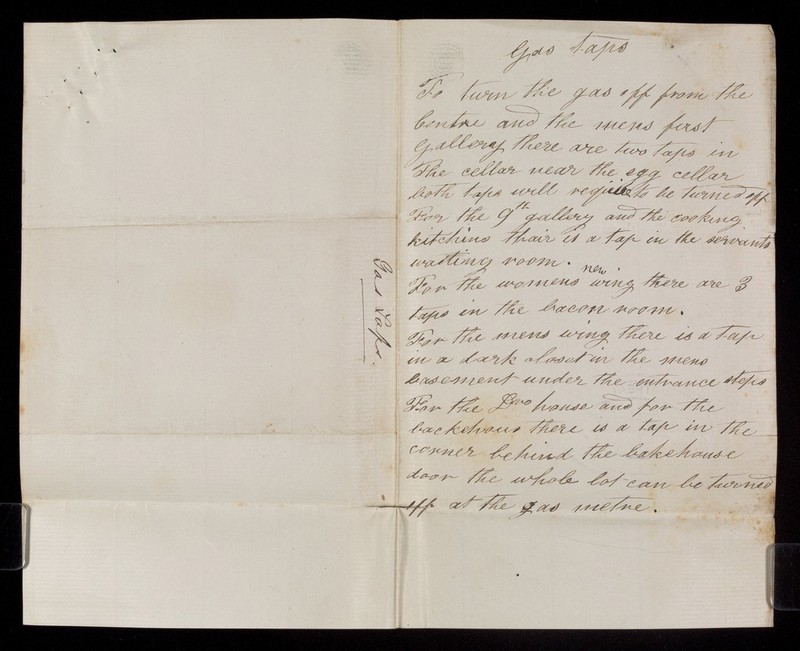 Gas Taps
To turn the gas off from the
Centre and the mens first
Gallery there are two taps in
The cellar near the egg cellar
both taps will require to be turned off
For the 9th gallery and the cooking
kitchins thair is a tap in the servants
waiting room.
For the womens new wing there are 3
taps in the bacon room.
For the mens wing there is a tap
in a dark closet in the mens
basement under the entrance steps
For the house and for the
backehous there is a tap in the
corner behind the bakehouse
door the whole lot can be turned
off at the gas metre.
Gas Taps.